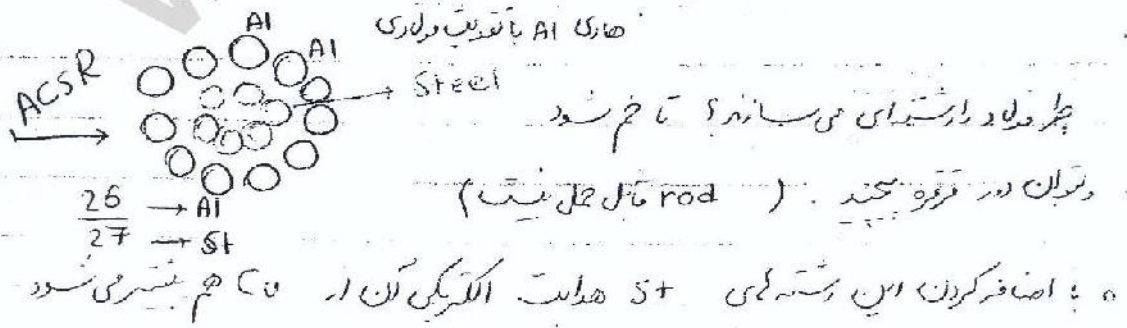 هادی Al با تقویت فولادی
Al
Al
Steel
ACSR
چرا فولاد را رشته‌ای می‌سازند؟ تا خم شود
و بتوان دور قرقره پیچید. (rod قابل حمل نیست)
26 → Al
27 → St
: اضافه کردن این رشته‌های St هدایت الکتریکی آن از Cu هم بیشتر می‌شود